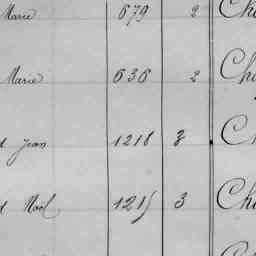 Marie 679 2 Ch
Marie 636 2 Ch
Jean 1218 3 Ch
Noel 1215 3 Ch